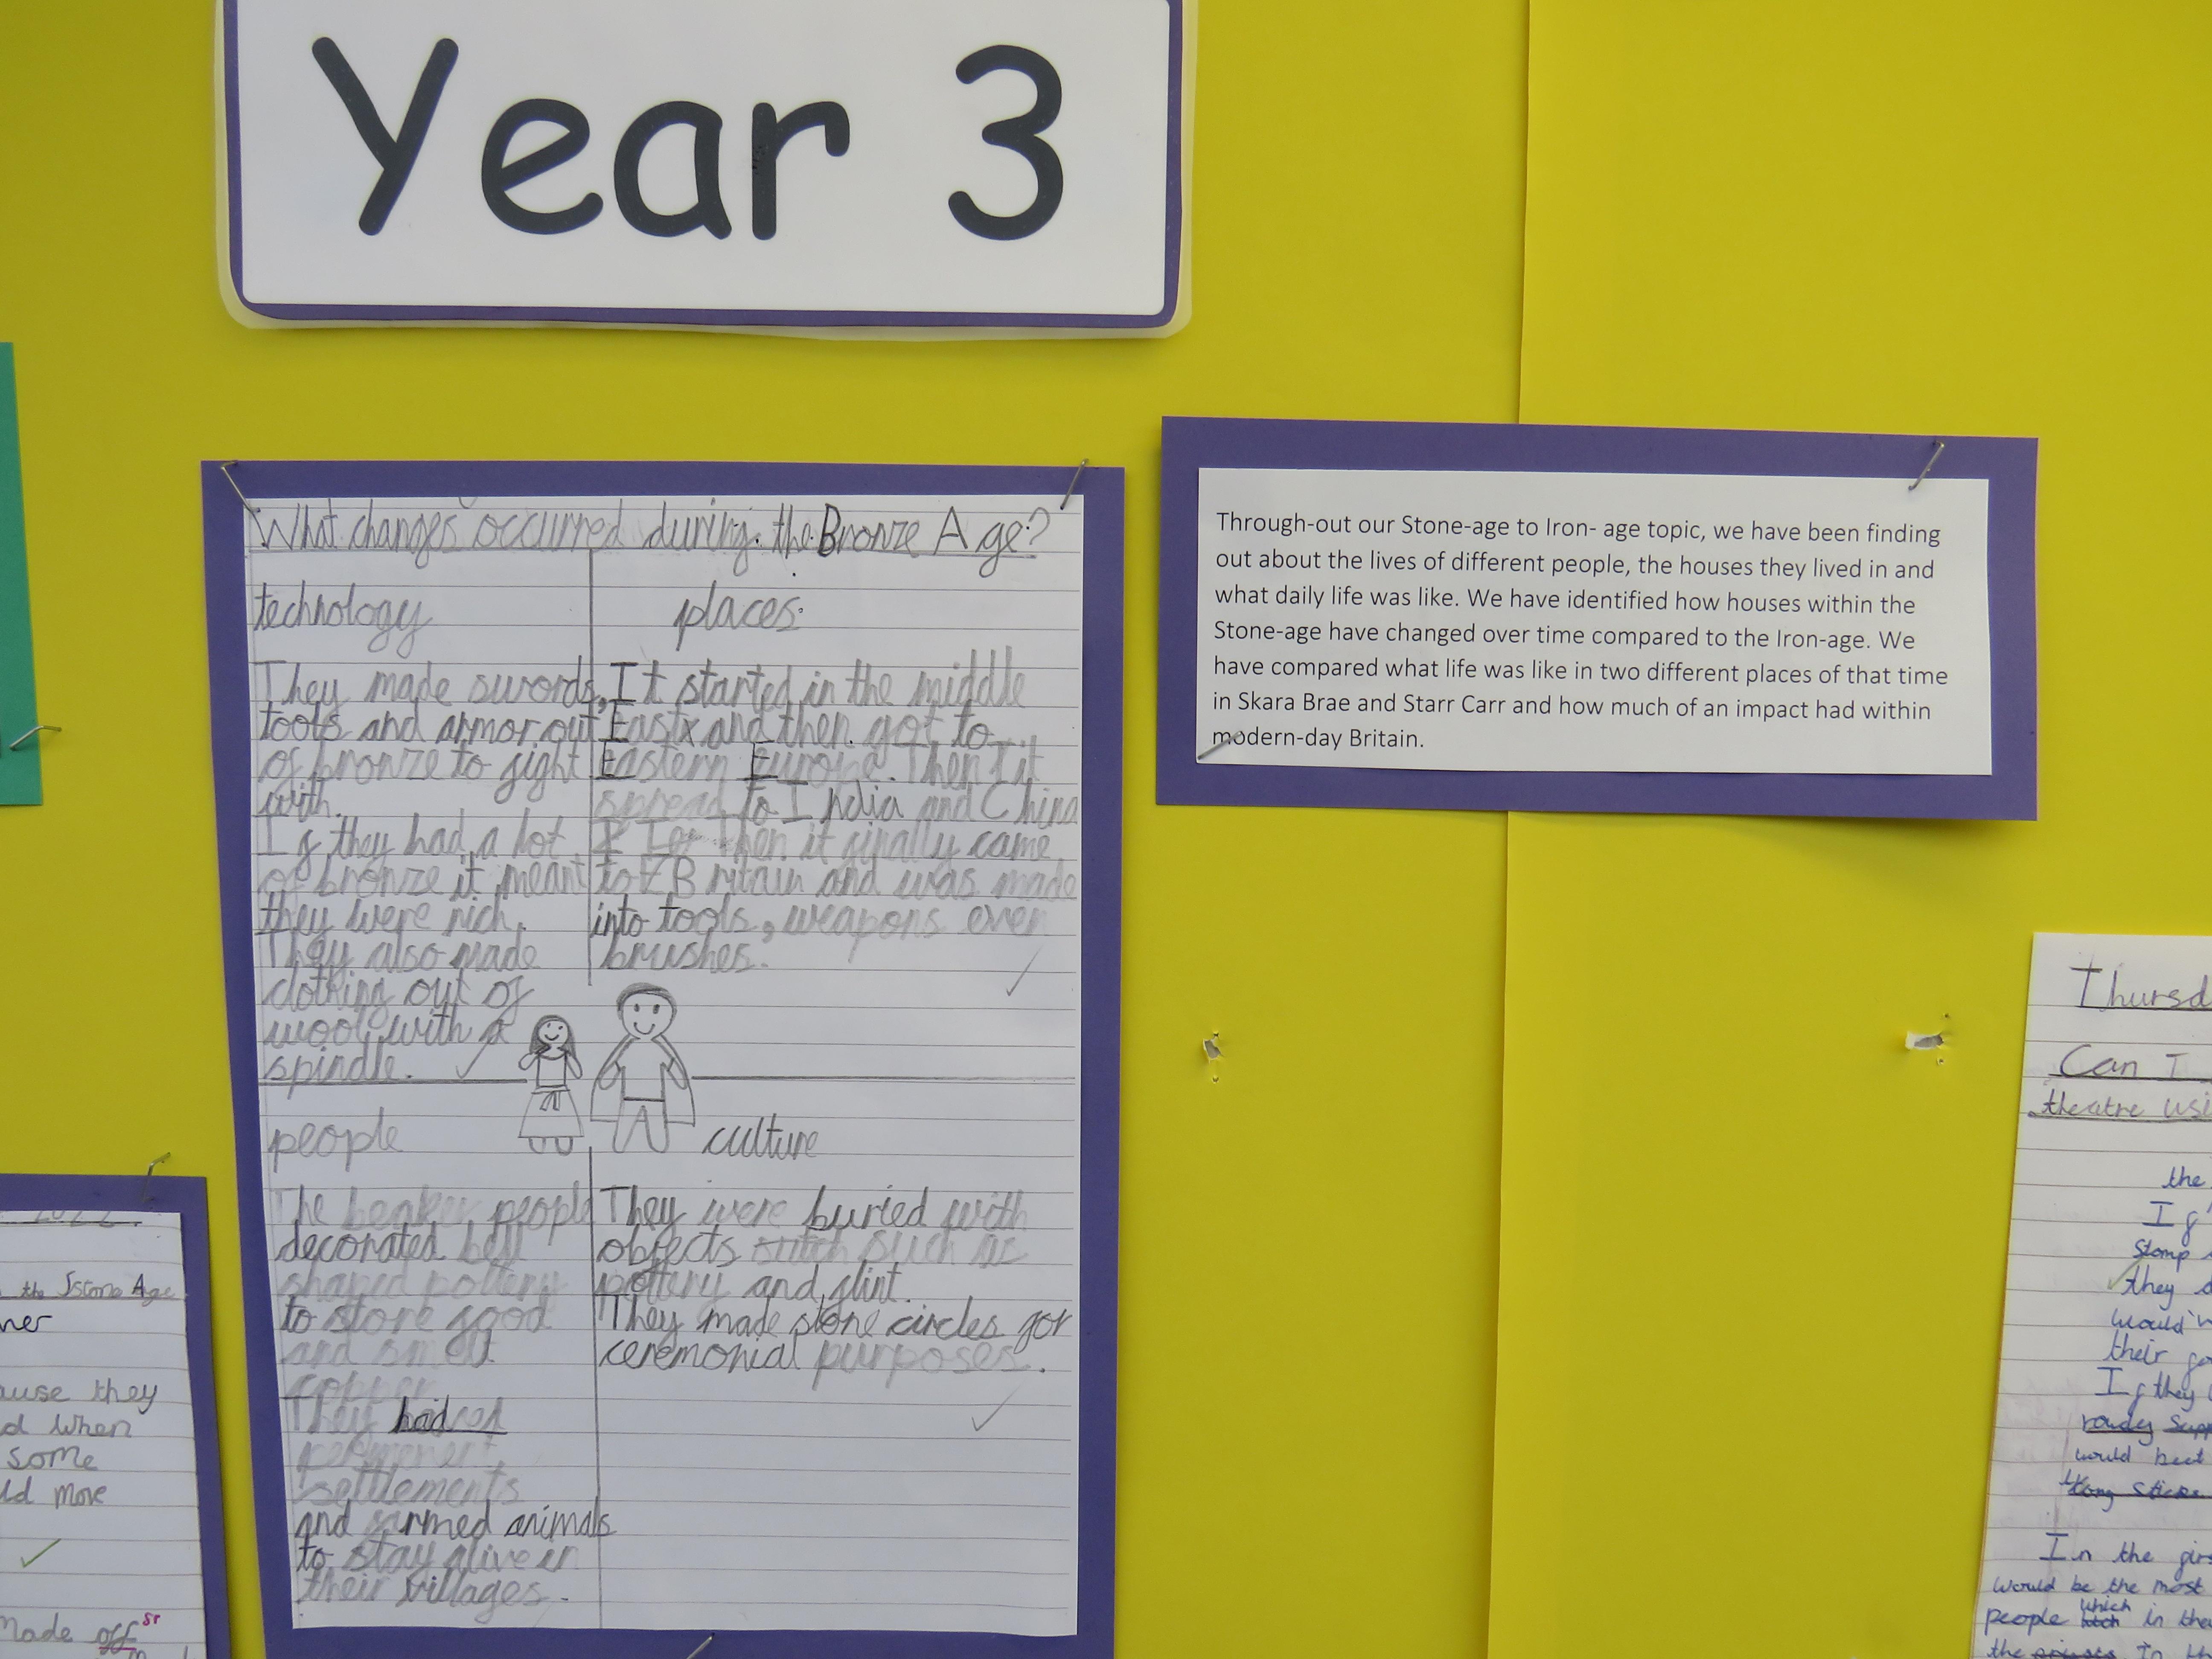 Year 3
What changes occurred during the Bronze Age?
technology
They made swords,
tools and armor out
of bronze to fight
with.
If they had a lot
of bronze it meant
they were rich.
They also made
clothing out of
wool with a
spindle.
places:
It started in the middle
East and then got to
Eastern Europe. Then it
spread to India and China
Then it finally came
to Britain and was made
into tools, weapons even
brushes.
people
The beaker people
decorated bell
shaped pottery
to store food
and smelt
copper
They had
settlements
and farmed animals
to stay alive in
their villages.
culture
They were buried with
objects such as
pottery and flint.
They made stone circles for
ceremonial purposes.
Through-out our Stone-age to Iron- age topic, we have been finding
out about the lives of different people, the houses they lived in and
what daily life was like. We have identified how houses within the
Stone-age have changed over time compared to the Iron-age. We
have compared what life was like in two different places of that time
in Skara Brae and Starr Carr and how much of an impact had within
modern-day Britain.
the Stone Age
they
d when
some
move
made off
Thursd
Can I
theatre usi
the
If
Stomp
they d
would
their
If they
rowdy
would
sticks
In the firs
would be the most
people which in the
the